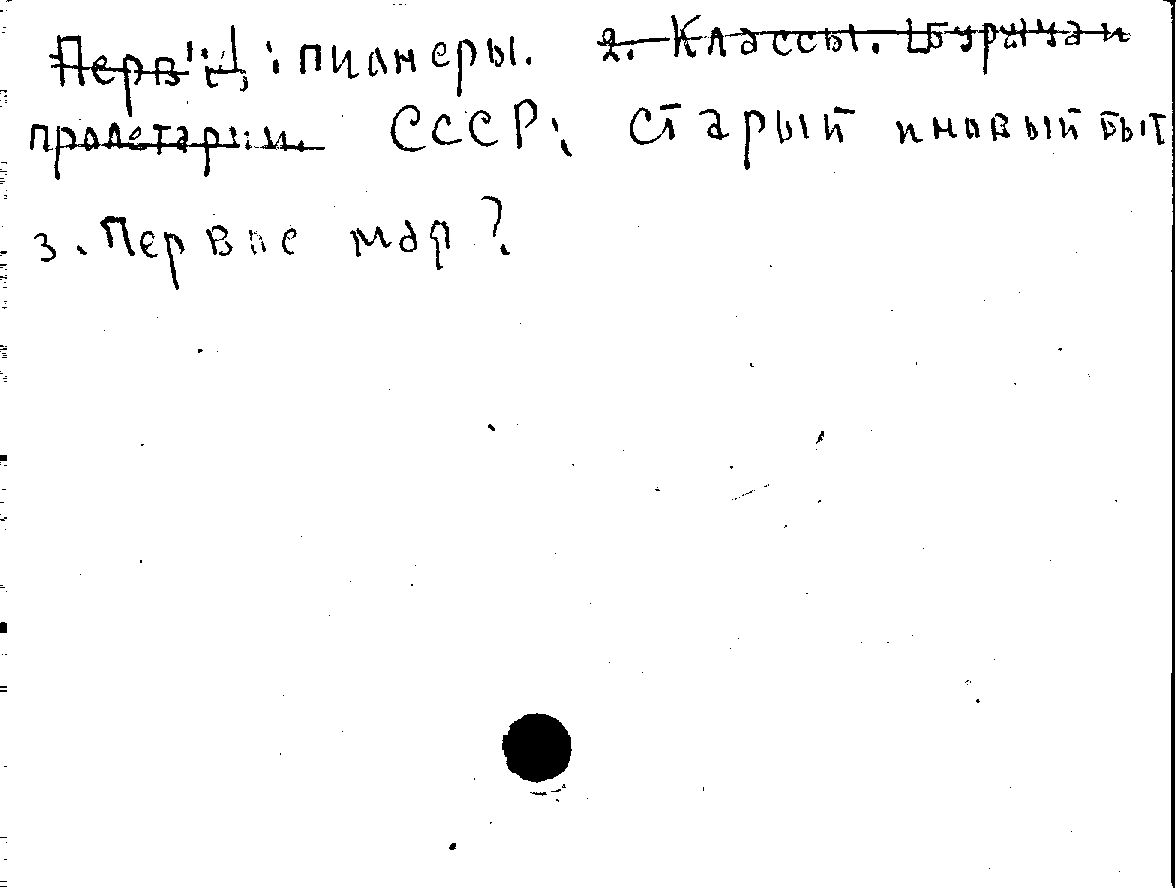 : пианеры. 2. Классы. Буржуа и
пролетарии. СССР: старый и новый быт
3. Первое мая?